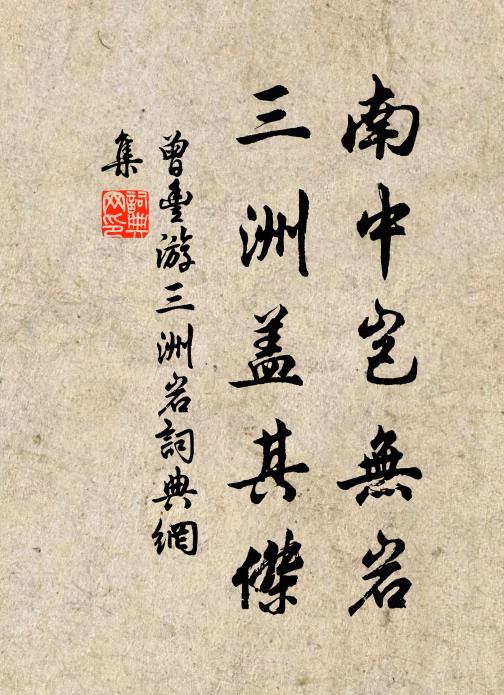 南中岂無岩
三洲盖其傑
曾豊游三洲岩詞典網
集
詞典
网印